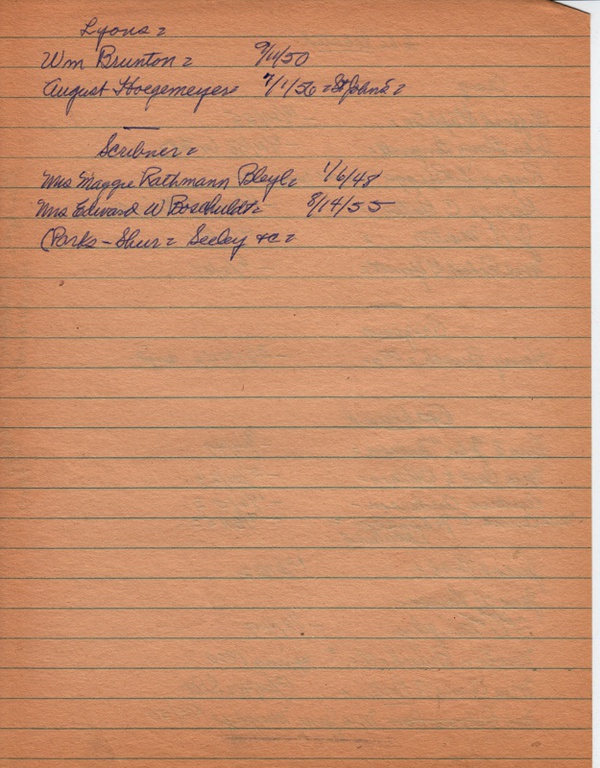 Lyons =
Wm Brunton = 9/11/50
August Hoegemeyer = 7/1/56 = St Johns =
Scribner =
Mrs Maggie Rathmann Bleyl = 1/6/48
Mrs Edward W Boschuldt = 8/14/55
(Parks - Shur = Seeley &c =